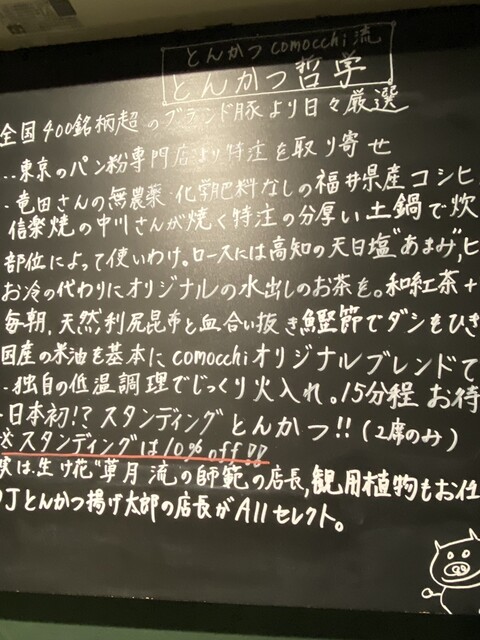 とんかつcomocchi流
とんかつ哲学
全国400銘柄超のブランド豚より日々厳選
..東京のパン粉専門店より特注を取り寄せ
・竜田さんの無農薬・化学肥料なしの福井県産コシヒ
信楽焼の中川さんが焼く特注の分厚い土鍋で炊
部位によって使いわけ。ロースには高知の天日塩"あまみ",ヒ
お冷の代わりにオリジナルの水出しのお茶を。和紅茶+
毎朝、天然利尻昆布と血合い抜き鰹節でダシをひき
国産の米油を基本にcomocchiオリジナルブレンドで
・独自の低温調理でじっくり火入れ。15分程お待
・日本初!?スタンディングとんかつ!!(2席のみ)
※スタンディングは10%off!!
実は、生け花"草月流"の師範の店長,観用植物もお任
DJとんかつ揚げ太郎の店長がAllセレクト。